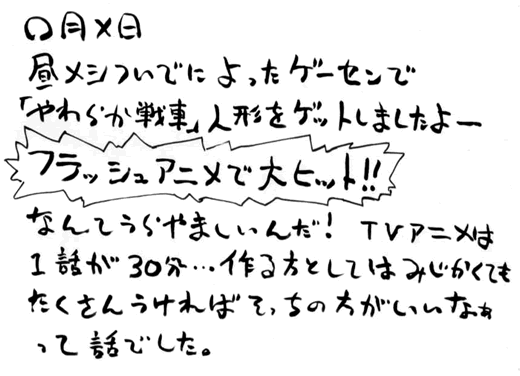 〇月×日
昼メシついでによったゲーセンで
「やわらか戦車」人形をゲットしましたよー
フラッシュアニメで大ヒット!!
なんてうらやましいんだ! TVアニメは
1話が30分…作る方としてはみじかくても
たくさんうければそっちの方がいいなぁ
って話でした。